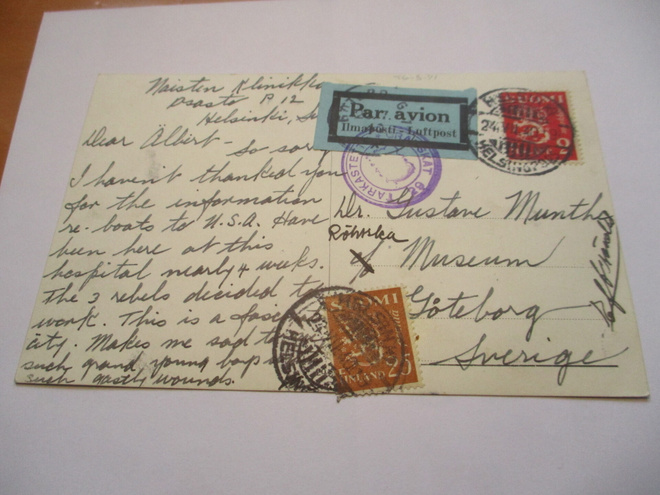 Naisten Klinikka
Osasto P 12
Helsinki,
Dear Albert –
So sorry
I haven't thanked you
for the information
re. boats to U.S.A. Have
been here at this
hospital nearly 4 weeks.
The 3 rebels decided to
work. This is a
city. Makes me sad to
such grand young boys
such gastly wounds.
Par avion
Ilmaposti - Luftpost
TARKASTE
SUOMI
24.VI.
HELSINGF
Dr. Gustave Munthe
Röhska
Museum
Göteborg
Sverige
SUOMI
FINLAND